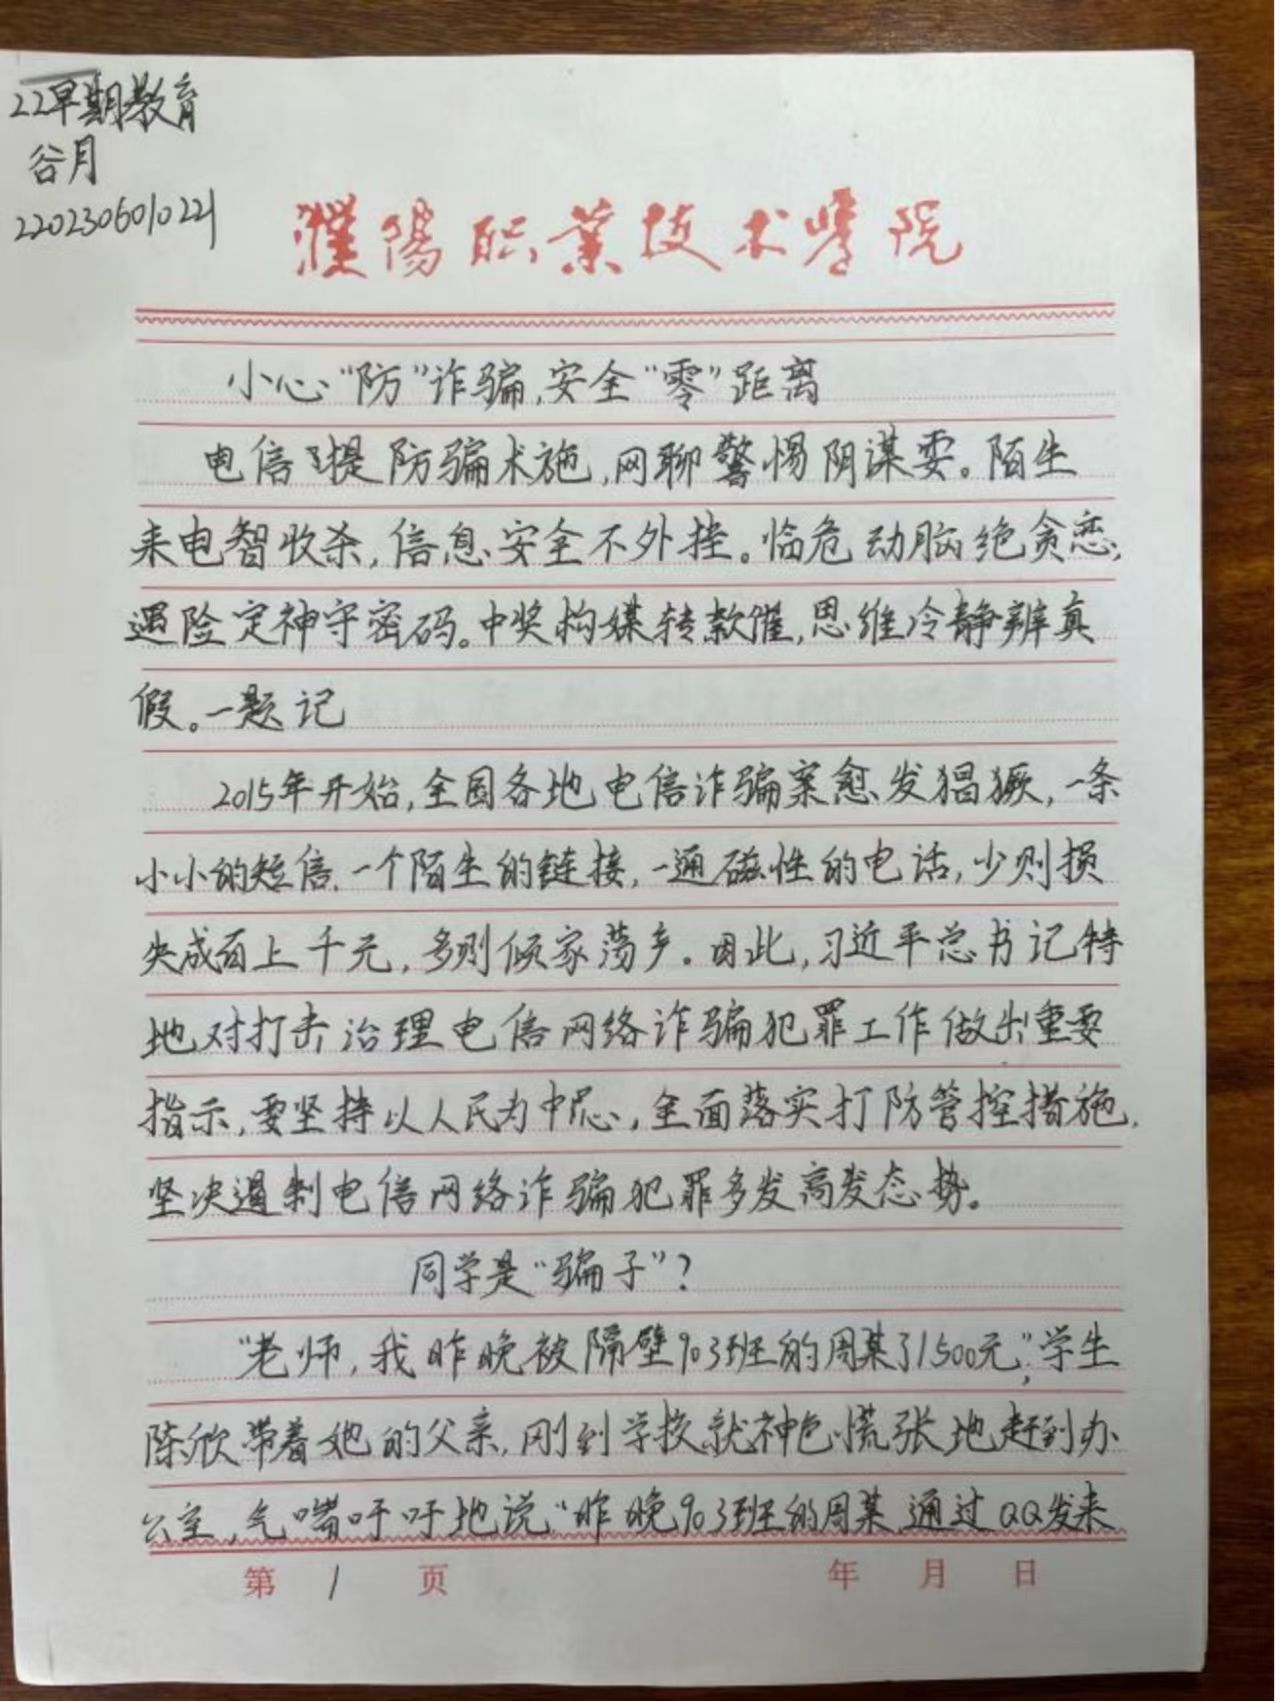 22早期教育
谷月
220230601022
濮陽职業技术學院
小心“防”诈骗,安全“零”距离
电信提防骗术施,网聊警惕阴谋耍。陌生
来电智收杀,信息安全不外挂。临危动脑绝贪恋,
遇险定神守密码。中奖构媒转款催,思维冷静辨真
假。一题记
2015年开始,全国各地电信诈骗案愈发猖獗,一条
小小的短信、一个陌生的链接,一通磁性的电话,少则损
失成百上千元,多则倾家荡产。因此,习近平总书记特
地对打击治理电信网络诈骗犯罪工作做出重要
指示,要坚持以人民为中心,全面落实打防管控措施,
坚决遏制电信网络诈骗犯罪多发高发态势。
同学是“骗子”?
“老师,我昨晚被隔壁903班的周某了1500元”,学生
陈欣带着她的父亲,刚到学校就神色慌张地赶到办
公室,气喘吁吁地说“昨晚903班的周某通过QQ发来
第 1 页 年 月 日